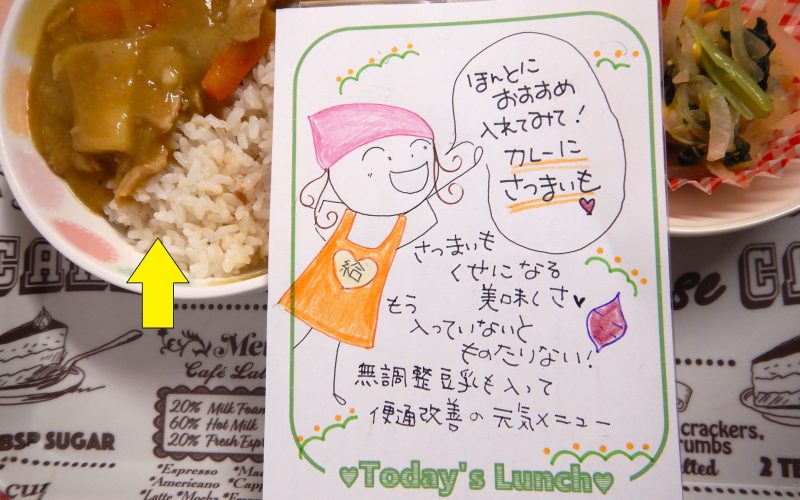 ほんとに
おすすめ
入れてみて!
カレーに
さつまいも
給
さつまいも
くせになる
美味しさ
もう
入っていないと
ものたりない!
無調整豆乳も入って
便通改善の元気メニュー
Today's Lunch
Me
Café Lat
20% Milk Foam
60% Hot Milk
20% Fresh Esp
BSP SUGAR
*Espresso
*Americano
*Latte
crackers,
rumbs